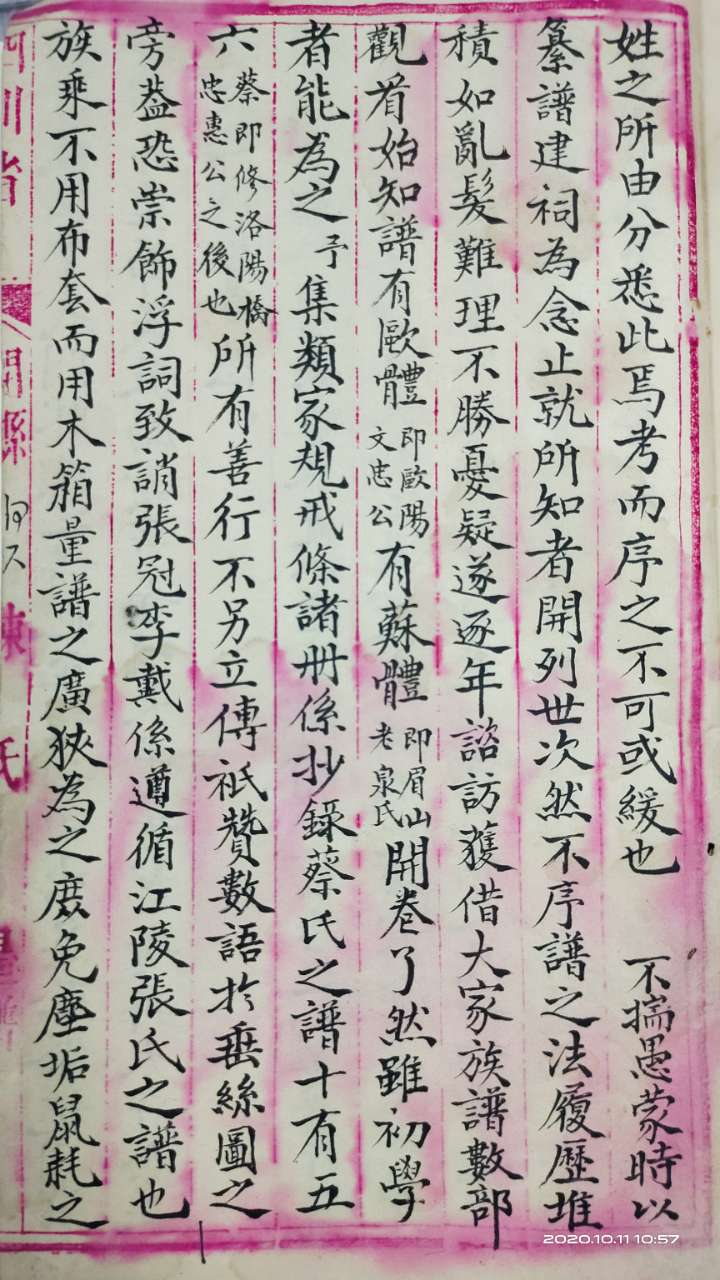 姓之所由分悉此焉考而序之不可或緩也　不揣愚蒙時以
纂譜建祠為念止就所知者開列世次然不序譜之法履歷堆
積如亂髮難理不勝憂疑遂逐年諮訪獲借大家族譜數部
觀看始知譜有歐體即歐陽文忠公有蘇體即眉山老泉氏開卷了然雖初學
者能為之予集類家規戒條諸册係抄錄蔡氏之譜十有五
六蔡即修洛陽橋忠惠公之後也所有善行不另立傳祇贊數語於垂絲圖之
旁葢恐崇飾浮詞致誚張冠李戴係遵循江陵張氏之譜也
族乘不用布套而用木箱量譜之廣狹為之庶免塵垢鼠耗之
四川省
開縣
陳氏
2020.10.11 10:57